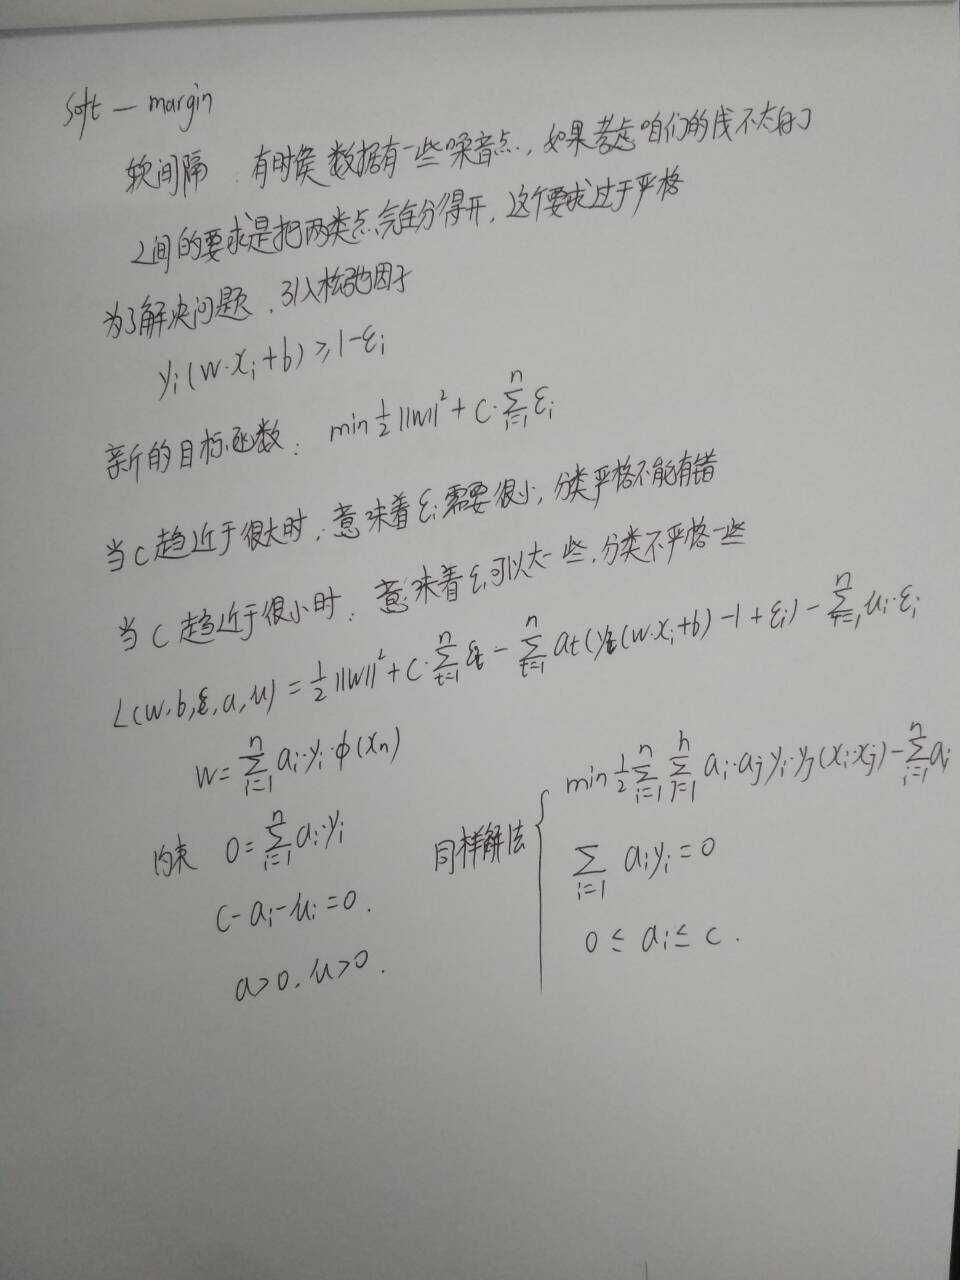 Soft — margin
软间隔：有时候数据有一些噪音点，如果考虑咱们的线不太好了
之间的要求是把两类点完全分得开，这个要求过于严格
为了解决问题，引入松弛因子
y_i(w·x_i+b) ≥ 1-ε_i
新的目标函数：min ½||w||² + C·∑_{i=1}^{n} ε_i
当C趋近于很大时：意味着ε_i需要很小，分类严格不能有错
当C趋近于很小时：意味着ε_i可以大一些，分类不严格一些
L(w,b,ξ,a,u) = ½||w||² + C·∑_{t=1}^{n} ξ_t - ∑_{t=1}^{n} a_t(y_t(w·x_i+b)-1+ε_i) - ∑_{i=1}^{n} u_i·ε_i
w=∑_{i=1}^{n} a_i·y_i·φ(x_n)
约束 0=∑_{i=1}^{n} a_i·y_i
C-a_i-u_i=0.
a>0, u>0.
同样解法
min ½ ∑_{i=1}^{n} ∑_{j=1}^{n} a_i·a_j y_i·y_j(x_i·x_j) - ∑_{i=1}^{n} a_i
∑_{i=1} a_i y_i=0
0 ≤ a_i ≤ C.